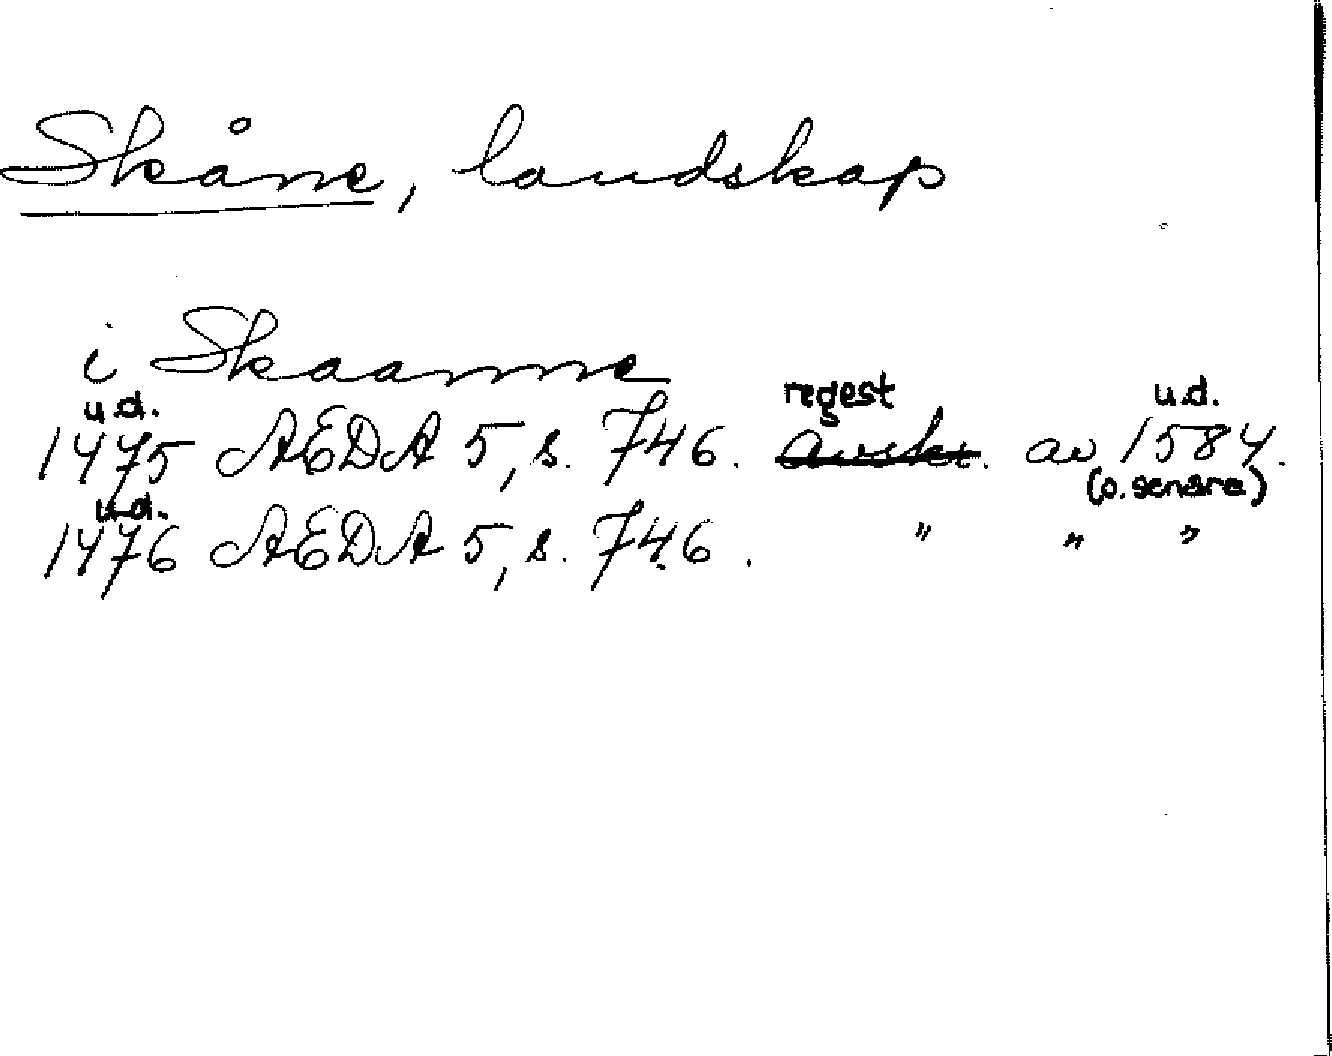 Skåne, landskap
i Skaanne
u.d. regest u.d.
1475 AEDA 5, s. 746. avskr. av 1584.
u.d. (o. senare)
1476 AEDA 5, s. 746. " " "